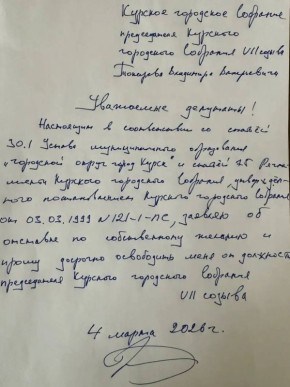 Курское городское Собрание
председателя Курского
городского Собрания VII созыва
Токарева Владимира Валерьевича
Уважаемые депутаты!
Настоящим в соответствии со статьёй
30.1 Устава муниципального образования
"городской округ город Курск" и статьёй 25 Регла-
мента Курского городского Собрания, утверждён-
ного постановлением Курского городского Собрания
от 03.03.1999 №121-1-ПС, заявляю об
отставке по собственному желанию и
прошу досрочно освободить меня от должности
председателя Курского городского Собрания
VII созыва
4 марта 2026 г.